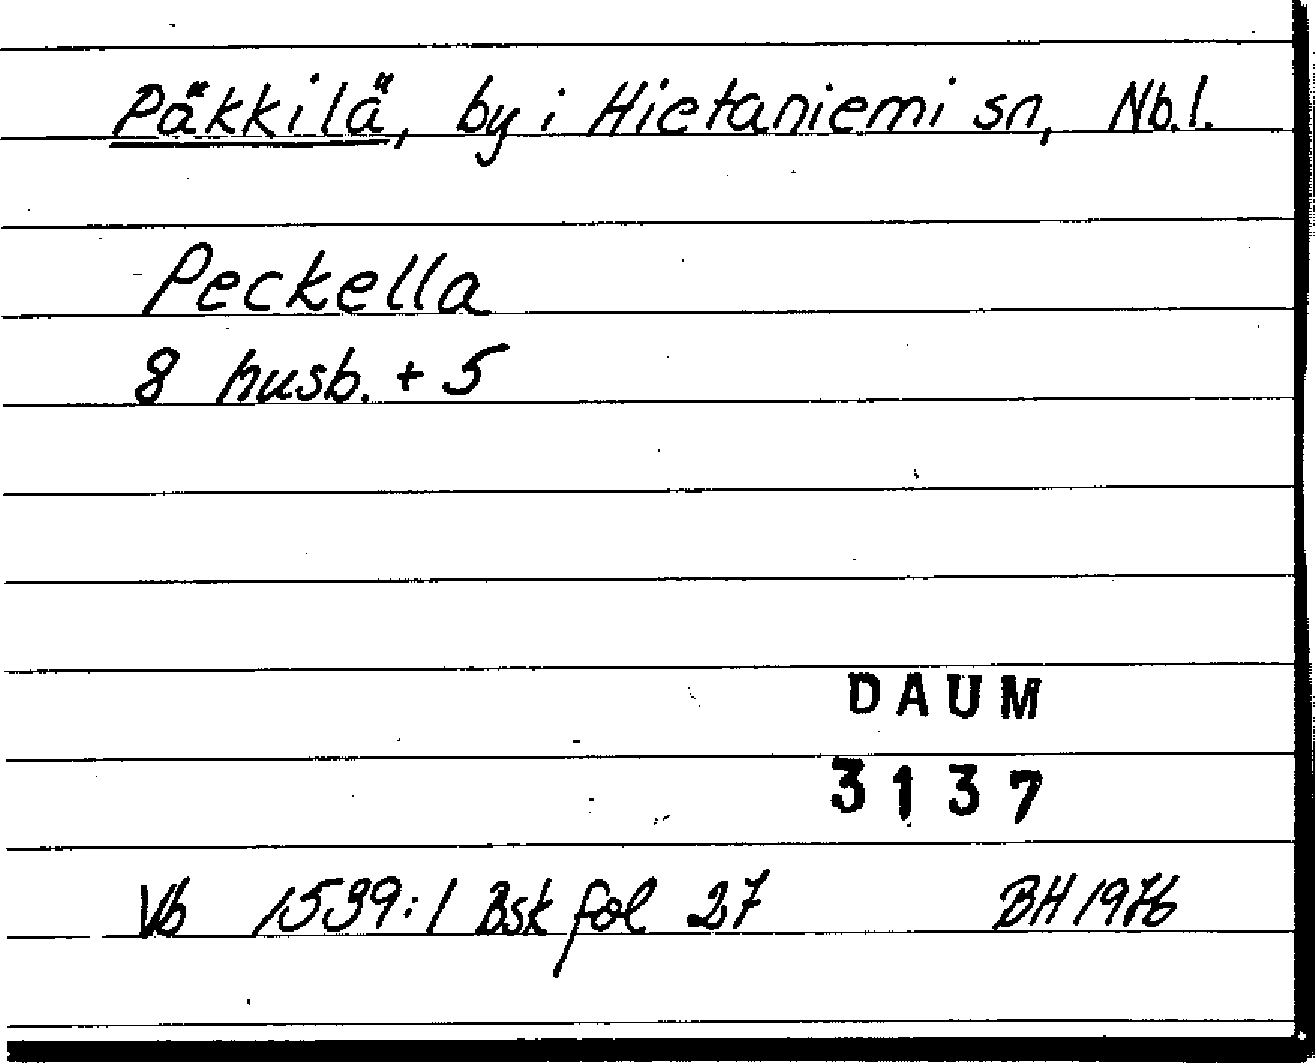 Päkkilä, by i Hietaniemi sn, Nb.l.
Peckella
8 husb. + 5
DAUM
3137
Vb 1539:1 Bsk fol 27 BH 1976